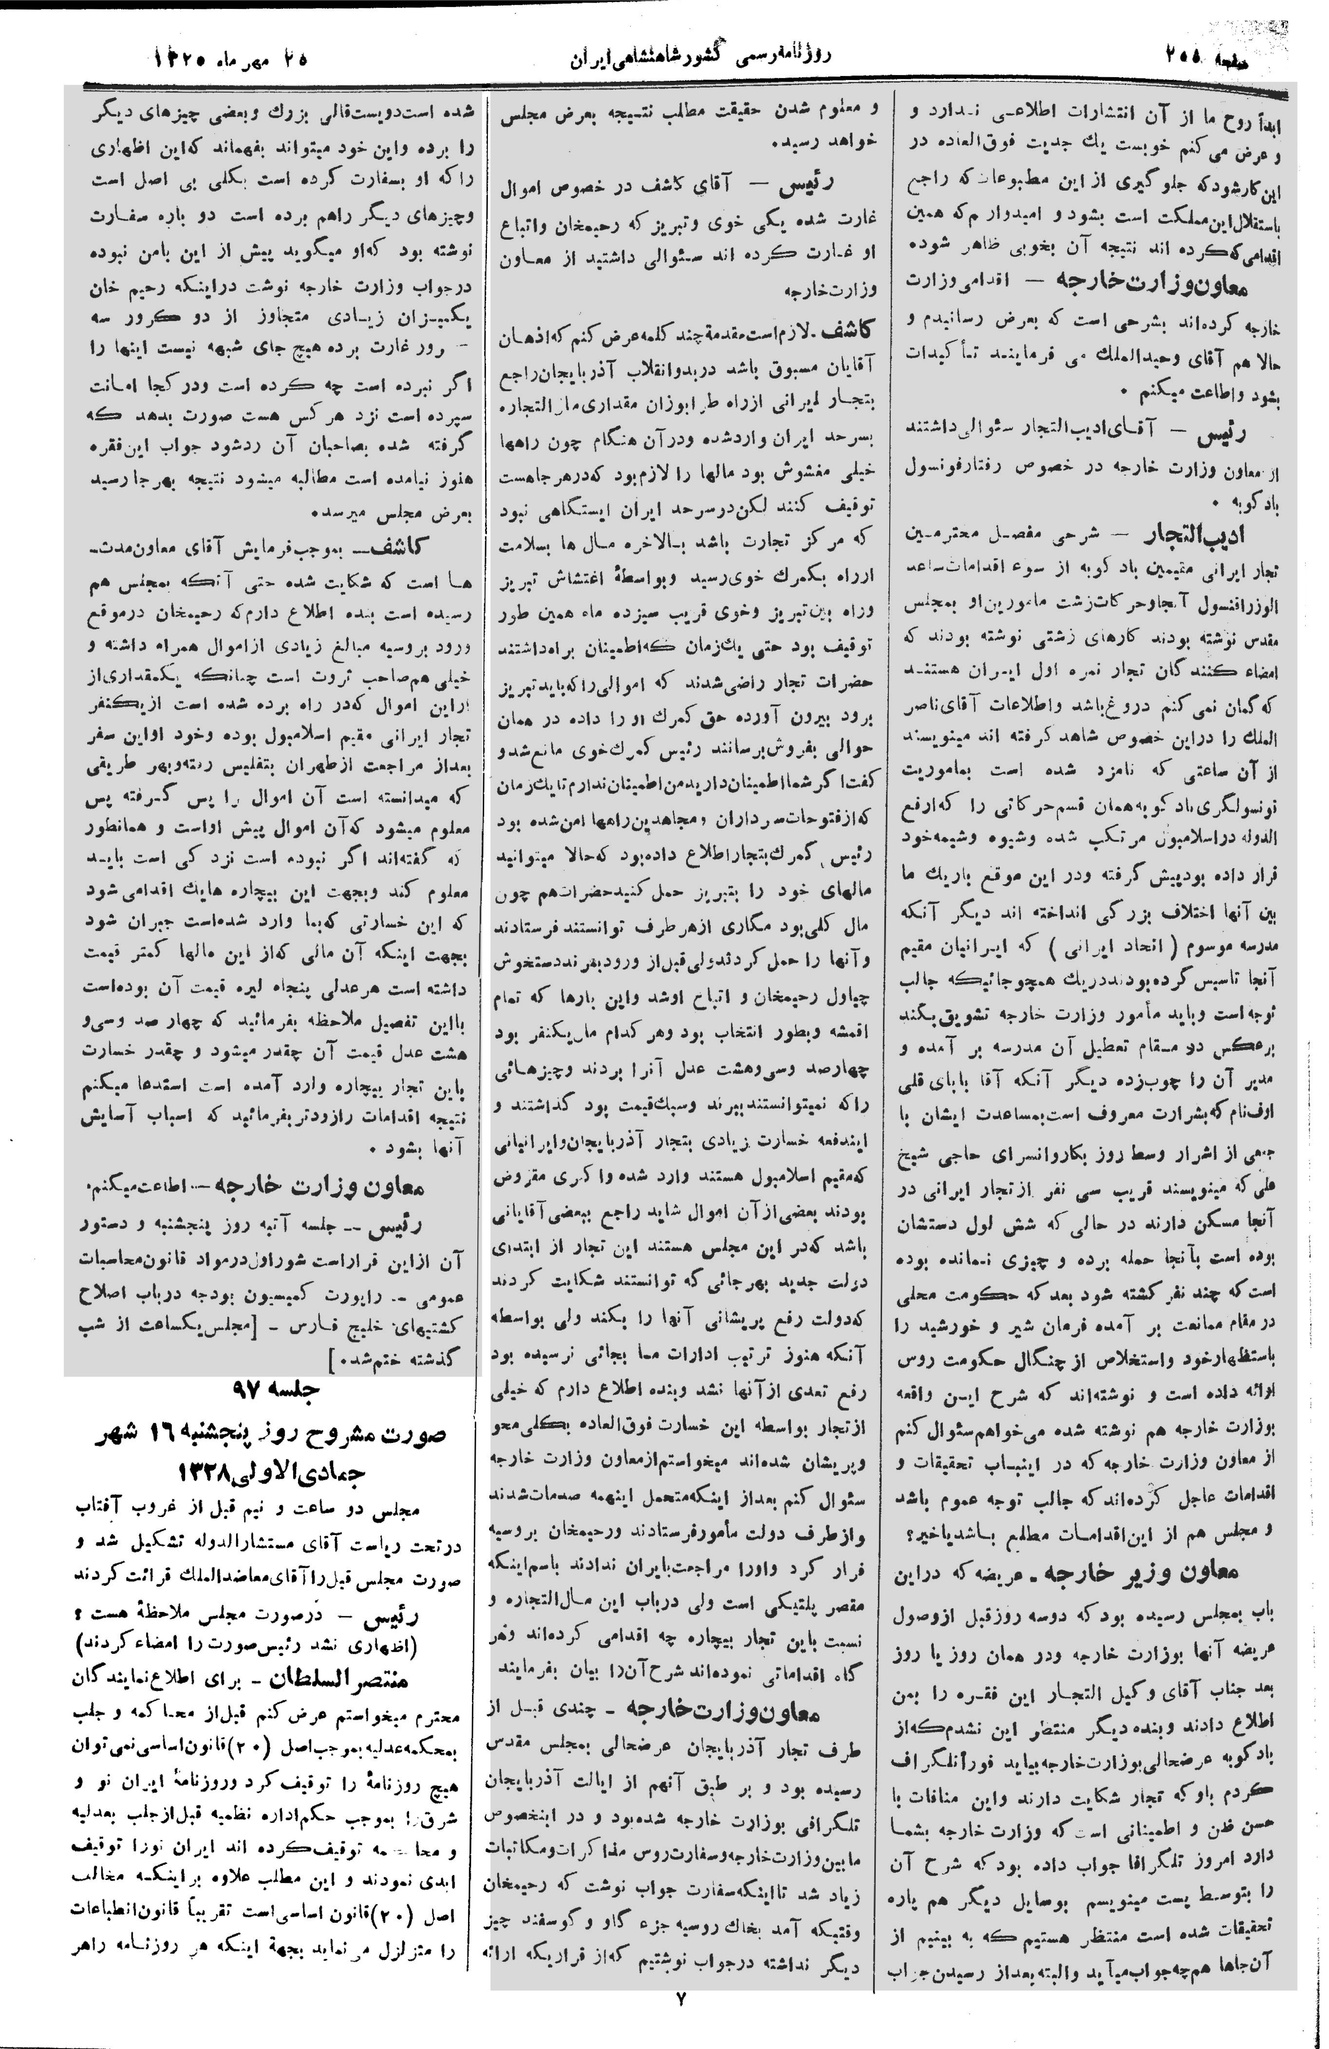 صفحه ۲۵۵
روزنامه رسمی کشور شاهنشاهی ایران
۲۵ مهر ماه ۱۳۲۵
ابداً روح ما از آن انتشارات اطلاعی ندارد و
و عرض می کنم خوبست یك جدیت فوق‌العاده در
این کار شود که جلو گیری از این مطبوعات که راجع
باستقلال این مملکت است بشود و امیدوارم که همین
اقدامی که کرده اند نتیجه آن بخوبی ظاهر شوده
معاون وزارت خارجه — اقدامی وزارت
خارجه کرده‌اند بشرحی است که بعرض رسانیدم و
حالا هم آقای وحیدالملك می فرمایند تأکیدات
بشود و اطاعت میکنم .
رئیس — آقای ادیب التجار سئوالی داشتند
از معاون وزارت خارجه در خصوص رفتار قونسول
باد کوبه .
ادیب التجار — شرحی مفصل محترمین
تجار ایرانی مقیمین باد کوبه از سوء اقدامات ساعد
الوزرا قنسول آنجا و حرکات زشت مامورین او بمجلس
مقدس نوشته بودند کارهای زشتی نوشته بودند که
امضاء کنند گان تجار نمره اول ایران هستند
که گمان نمی کنم دروغ باشد و اطلاعات آقای ناصر
الملك را در این خصوص شاهد گرفته اند مینویسند
از آن ساعتی که نامزد شده است بماموریت
قونسولگری باد کوبه همان قسم حرکاتی را که ارفع
الدوله در اسلامبول مرتکب شده و شیوه و شیمه خود
قرار داده بود پیش گرفته و در این موقع باریك ما
بین آنها اختلاف بزرگی انداخته اند دیگر آنکه
مدرسه موسوم ( اتحاد ایرانی ) که ایرانیان مقیم
آنجا تاسیس کرده بودند در یك همچو جائیکه جالب
توجه است و باید مأمور وزارت خارجه تشویق بکند
برعکس در مقام تعطیل آن مدرسه بر آمده و
مدیر آن را چوب زده دیگر آنکه آقا بابای قلی
اوف نام که بشرارت معروف است بمساعدت ایشان با
جمعی از اشرار وسط روز بکاروانسرای حاجی شیخ
علی که مینویسند قریب سی نفر از تجار ایرانی در
آنجا مسکن دارند در حالی که شش لول دستشان
بوده است بآنجا حمله برده و چیزی نمانده بوده
است که چند نفر کشته شود بعد که حکومت محلی
در مقام ممانعت بر آمده فرمان شیر و خورشید را
باستظهار خود و استخلاص از چنگال حکومت روس
ارائه داده است و نوشته‌اند که شرح این واقعه
بوزارت خارجه هم نوشته شده می‌خواهم سئوال کنم
از معاون وزارت خارجه که در اینباب تحقیقات و
اقدامات عاجل کرده‌اند که جالب توجه عموم باشد
و مجلس هم از این اقدامات مطلع باشد یا خیر؟
معاون وزیر خارجه - عریضه که در این
باب بمجلس رسیده بود که دوسه روز قبل از وصول
عریضه آنها بوزارت خارجه ودر همان روز یا روز
بعد جناب آقای وکیل التجار این فقره را بمن
اطلاع دادند و بنده دیگر منتظر این نشدم که از
باد کوبه عرضحالی بوزارت خارجه بیاید فوراً تلگراف
کردم باو که تجار شکایت دارند و این منافات با
حسن ظن و اطمینانی است که وزارت خارجه بشما
دارد امروز تلگرافا جواب داده بود که شرح آن
را بتوسط پست مینویسم بوسایل دیگر هم پاره
تحقیقات شده است منتظر هستیم که به بینیم از
آن جاها هم چه جواب میآید و البته بعد از رسیدن جواب
و معلوم شدن حقیقت مطالب نتیجه بعرض مجلس
خواهد رسید.
رئیس — آقای کاشف در خصوص اموال
غارت شده یکی خوی و تبریز که رحیمخان و اتباع
او غارت کرده اند سئوالی داشتید از معاون
وزارت خارجه
کاشف - لازم است مقدمة چند کلمه عرض کنم که اذهان
آقایان مسبوق باشد در بدو انقلاب آذربایجان راجع
بتجار ایرانی از راه طرابوزان مقداری مال التجاره
بسرحد ایران وارد شده و در آن هنگام چون راهها
خیلی مغشوش بود مالها را لازم بود که در هر جا هست
توقیف کنند لکن در سرحد ایران ایستگاهی نبود
که مرکز تجارت باشد بالاخره مال ها بسلامت
از راه بگمرك خوی رسید و بواسطهٔ اغتشاش تبریز
وراه بین تبریز و خوی قریب سیزده ماه همین طور
توقیف بود حتی یك زمان که اطمینان براه داشتند
حضرات تجار راضی شدند که اموالی را که باید تبریز
برود بیرون آورده حق گمرك او را داده در همان
حوالی بفروش برسانند رئیس گمرك خوی مانع شد و
گفت اگر شما اطمینان دارید من اطمینان ندارم تا یك زمان
که از فتوحات سرداران و مجاهدین راهها امن شده بود
رئیس گمرك بتجار اطلاع داده بود که حالا میتوانید
مالهای خود را بتبریز حمل کنید حضرات هم چون
مال کلی بود مکاری از هر طرف توانستند فرستادند
و آنها را حمل کردند ولی قبل از ورود بمرند دستخوش
چپاول رحیمخان و اتباع او شد و این بارها که تمام
اقمشه و بطور انتخاب بود و هر کدام مال یکنفر بود
چهارصد و سی و هشت عدل آنرا بردند و چیزهائی
را که نمیتوانستند ببرند و سبك قیمت بود گذاشتند و
ایندفعه خسارت زیادی بتجار آذربایجان و ایرانیانی
که مقیم اسلامبول هستند وارد شده و اکثری مقروض
بودند بعضی از آن اموال شاید راجع ببعضی آقایانی
باشد که در این مجلس هستند این تجار از ابتدای
دولت جدید بهر جائی که توانستند شکایت کردند
که دولت رفع پریشانی آنها را بکند ولی بواسطه
آنکه هنوز ترتیب ادارات مما بجائی نرسیده بود
رفع تعدی از آنها نشد و بنده اطلاع دارم که خیلی
از تجار بواسطه این خسارت فوق‌العاده بکلی محو
و پریشان شده‌اند میخواستم از معاون وزارت خارجه
سئوال کنم بعد از اینکه متحمل اینهمه صدمات شدند
و از طرف دولت مأمور فرستادند و رحیمخان بروسیه
فرار کرد و او را مراجعت بایران ندادند باسم اینکه
مقصر پلتیکی است ولی در باب این مال التجاره و
نسبت باین تجار بیچاره چه اقدامی کرده‌اند و هر
گاه اقداماتی نموده‌اند شرح آن را بیان بفرمایند
معاون وزارت خارجه - چندی قبل از
طرف تجار آذربایجان عرضحالی بمجلس مقدس
رسیده بود و بر طبق آنهم از ایالت آذربایجان
تلگرافی بوزارت خارجه شده بود و در اینخصوص
ما بین وزارت خارجه و سفارت روس مذاکرات و مکاتبات
زیاد شد تا اینکه سفارت جواب نوشت که رحیمخان
وقتیکه آمد بخاك روسیه جزء گاو و گوسفند چیز
دیگر نداشته در جواب نوشتیم که از قراریکه ارائه
شده است دویست قالی بزرك و بعضی چیزهای دیگر
را برده و این خود میتواند بفهماند که این اظهاری
را که او بسفارت کرده است بکلی بی اصل است
و چیزهای دیگر را هم برده است دو باره سفارت
نوشته بود که او میگوید پیش از این با من نبوده
در جواب وزارت خارجه نوشت در اینکه رحیم خان
یکمیزان زیادی متجاوز از دو کرور سه
کرور غارت برده هیچ جای شبهه نیست اینها را
اگر نبرده است چه کرده است و در کجا امانت
سپرده است نزد هر کس هست صورت بدهد که
گرفته شده بصاحبان آن رد شود جواب این فقره
هنوز نیامده است مطالبه میشود نتیجه بهر جا رسید
بعرض مجلس میرسد.
کاشف – بموجب فرمایش آقای معاون مدت-
ها است که شکایت شده حتی آنکه بمجلس هم
رسیده است بنده اطلاع دارم که رحیمخان در موقع
ورود بروسیه مبالغ زیادی از اموال همراه داشته و
خیلی هم صاحب ثروت است چنانکه یکمقداری از
از این اموال که در راه برده شده است از یکنفر
تجار ایرانی مقیم اسلامبول بوده و خود او این سفر
بعد از مراجعت از طهران بتفلیس رفته و بهر طریقی
که میدانسته است آن اموال را پس گرفته پس
معلوم میشود که آن اموال پیش او است و همانطور
که گفته‌اند اگر نبوده است نزد کی است باید
معلوم کند و بجهت این بیچاره هایك اقدامی شود
که این خسارتی که بما وارد شده است جبران شود
بجهت اینکه آن مالی که از این مالها کمتر قیمت
داشته است هر عدلی پنجاه لیره قیمت آن بوده است
با این تفصیل ملاحظه بفرمائید که چهار صد و سی و
هشت عدل قیمت آن چقدر میشود و چقدر خسارت
باین تجار بیچاره وارد آمده است استدعا میکنم
نتیجه اقدامات را زودتر بفرمائید که اسباب آسایش
آنها بشود .
معاون وزارت خارجه — اطاعت میکنم.
رئیس – جلسه آتیه روز پنجشنبه و دستور
آن از این قرار است شور اول در مواد قانون محاسبات
عمومی – راپورت کمیسیون بودجه در باب اصلاح
کشتیهای خلیج فارس - [مجلس یکساعت از شب
گذشته ختم شد.]
جلسه ۹۷
صورت مشروح روز پنجشنبه ۱۶ شهر
جمادی الاولی ۱۳۲۸
مجلس دو ساعت و نیم قبل از غروب آفتاب
در تحت ریاست آقای مستشارالدوله تشکیل شد و
صورت مجلس قبل را آقای معاضدالملك قرائت کردند
رئیس — در صورت مجلس ملاحظهٔ هست ؟
(اظهاری نشد رئیس صورت را امضاء کردند)
منتصر السلطان - برای اطلاع نمایند گان
محترم میخواستم عرض کنم قبل از محاکمه و جلب
بمحکمه عدلیه بموجب اصل (۲۰) قانون اساسی نمی توان
هیچ روزنامهٔ را توقیف کرد و روزنامهٔ ایران نو و
شرق را بموجب حکم اداره نظمیه قبل از جلب بعدلیه
و محاکمه توقیف کرده اند ایران نو را توقیف
ابدی نمودند و این مطلب علاوه بر اینکه مخالف
اصل (۲۰) قانون اساسی است تقریباً قانون انطباعات
را متزلزل می نماید بجهة اینکه هر روزنامه را هر
۷